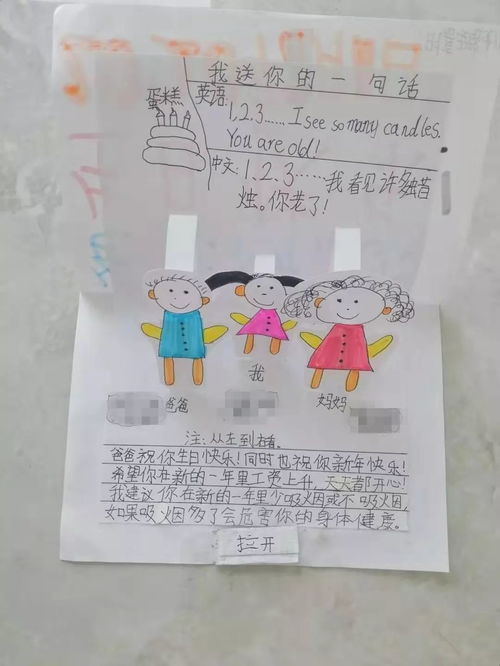 我送你的一句话
蛋糕
英语:
1,2,3......I see so many candles.
You are old!
中文:1、2、3......我看见许多蜡
烛。你老了!
我
爸爸
妈妈
注:从左到右看。
爸爸祝你生日快乐!同时也祝你新年快乐!
希望你在新的一年里工资上升,天天都开心!
我建议你在新的一年里少吸烟或不吸烟,
如果吸烟多了会危害你的身体健康。
拉开